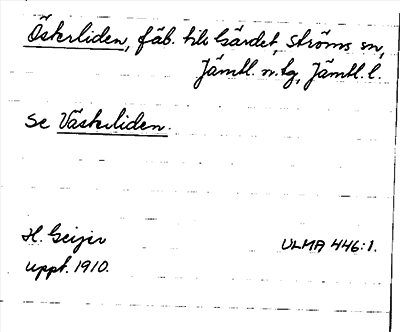 Österliden, fäb. till Gärdet, Ströms sn,
Jämtl. n. tg, Jämtl. l.
Se Västerliden.
H. Geijer ULMA 446:1.
uppt. 1910.